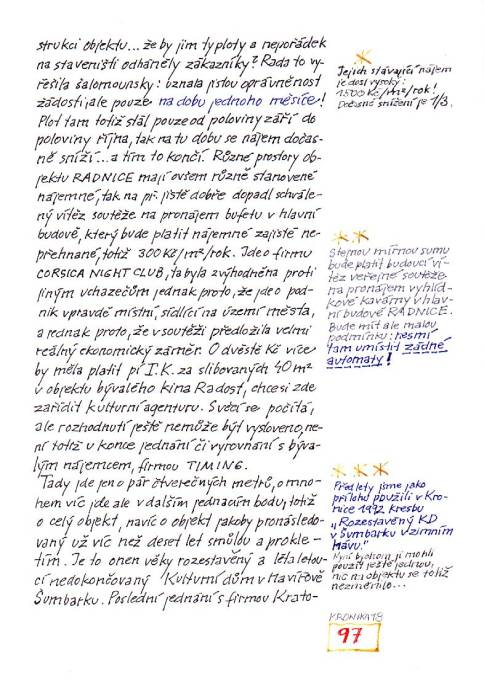 strukci objektu... že by jim ty ploty a nepořádek
na staveništi odháněly zákazníky? Rada to vy-
řešila šalomounsky: uznala jistou oprávněnost
žádosti, ale pouze na dobu jednoho měsíce!
Plot tam totiž stál pouze od poloviny září do
poloviny října, tak na tu dobu se nájem dočas-
ně sníží... a tím to končí. Různé prostory ob-
jektu RADNICE mají ovšem různě stanovené
nájemné, tak na př. jistě dobře dopadl schvále-
ný vítěz soutěže na pronájem bufetu v hlavní
budově, který bude platit nájemné zajisté ne-
přehnané, totiž 300 Kč/m²/rok. Jde o firmu
CORSICA NIGHT CLUB, ta byla zvýhodněna proti
jiným uchazečům jednak proto, že jde o pod-
nik vpravdě místní, sídlící na území města,
a jednak proto, že v soutěži předložila velmi
reálný ekonomický záměr. O dvěstě Kč více
by měla platit pí I. K. za slibovaných 40 m²
v objektu bývalého kina Radost, chce si zde
zařídit kulturní agenturu. S věcí se počítá,
ale rozhodnutí ještě nemůže být vysloveno, ne-
ní totiž u konce jednání či vyrovnání s býva-
lým nájemcem, firmou TIMING.
Tady jde jen o pár čtverečných metrů, o mno-
hem víc jde ale v dalším jednacím bodu, totiž
o celý objekt, navíc o objekt jakoby pronásledo-
vaný už víc než deset let smůlou a prokle-
tím. Je to onen věky rozestavěný a léta letou-
cí nedokončovaný Kulturní dům v Havířově
Šumbarku. Poslední jednání s firmou Krato-
*
Jejich stávající nájem
je dost vysoký:
1500 Kč/m²/rok!
Dočasné snížení je 1/3.
* *
Stejnou mírnou sumu
bude platit budoucí ví-
těz veřejné soutěže
na pronájem vyhlíd-
kové kavárny v hlav-
ní budově RADNICE.
Bude mít ale malou
podmínku: nesmí
tam umístit žádné
automaty!
* * *
Před lety jsme jako
přílohu použili v Kro-
nice 1992 kresbu
„Rozestavěný KD
v Šumbarku v zimním
hávu."
Nyní bychom ji mohli
použít ještě jednou,
nic na objektu se totiž
nezměnilo...
KRONIKA 18
97